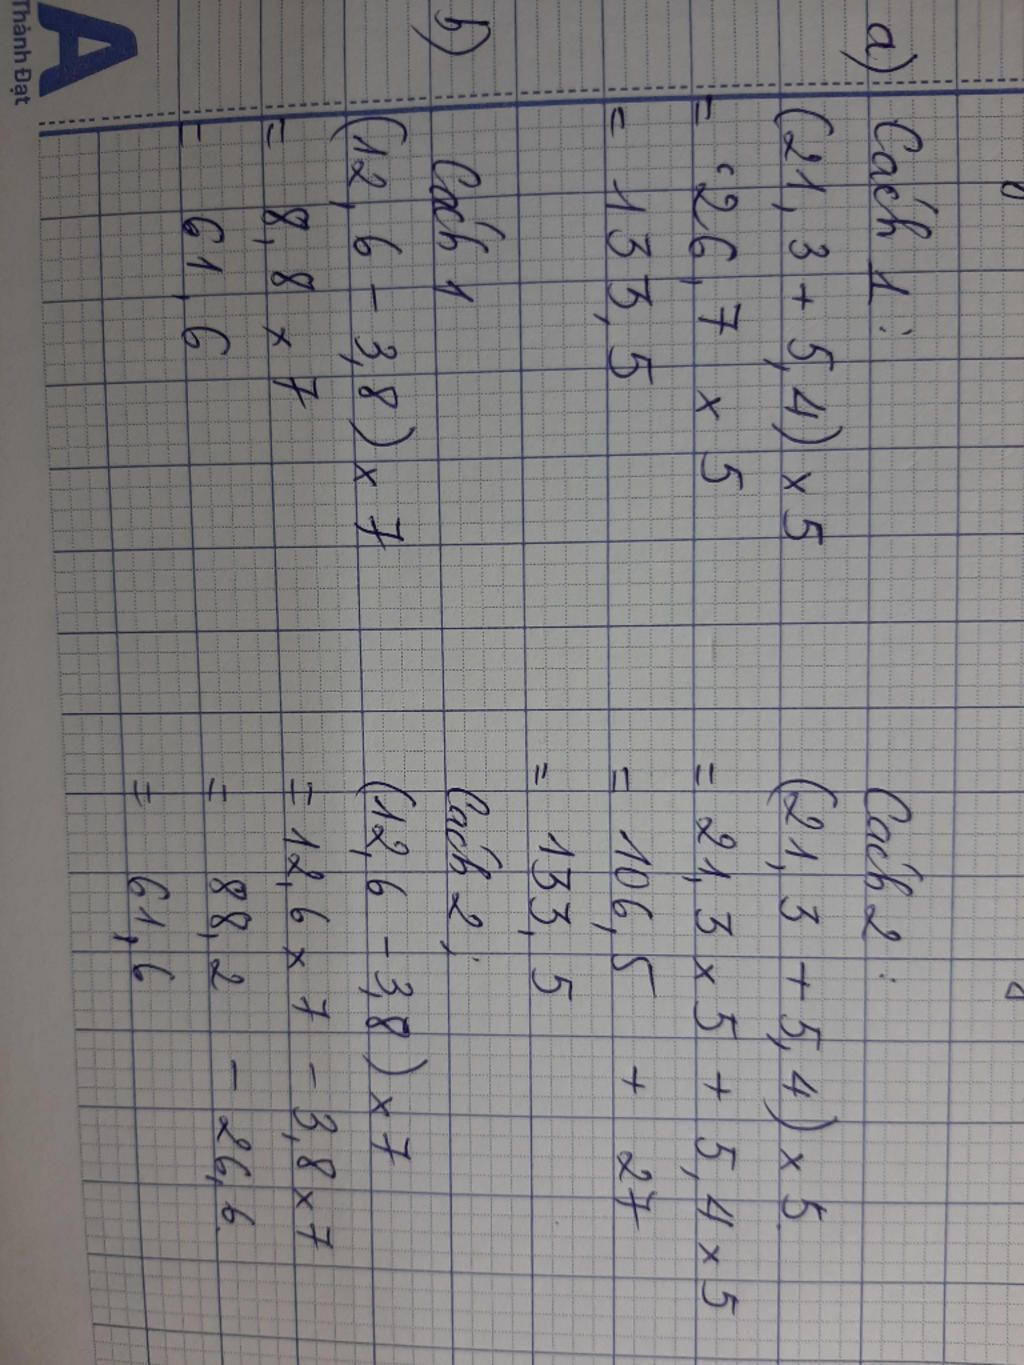 a) Cách 1: Cách 2:
(21,3 + 5,4) x 5 (21,3 + 5,4) x 5
= 26,7 x 5 = 21,3 x 5 + 5,4 x 5
= 133,5 = 106,5 + 27
= 133,5
b) Cách 1 Cách 2:
(12,6 - 3,8) x 7 (12,6 - 3,8) x 7
= 8,8 x 7 = 12,6 x 7 - 3,8 x 7
= 61,6 = 88,2 - 26,6
= 61,6
A
Thành Đạt